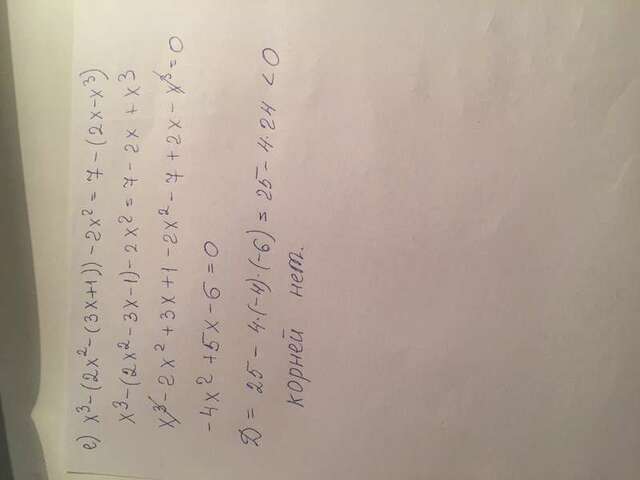 е) x³-(2x²-(3x+1))-2x²=7-(2x-x³)
x³-(2x²-3x-1)-2x²=7-2x+x3
x³-2x²+3x+1-2x²-7+2x-x³=0
-4x²+5x-6=0
D=25-4·(-4)·(-6)=25-4·24<0
корней нет.